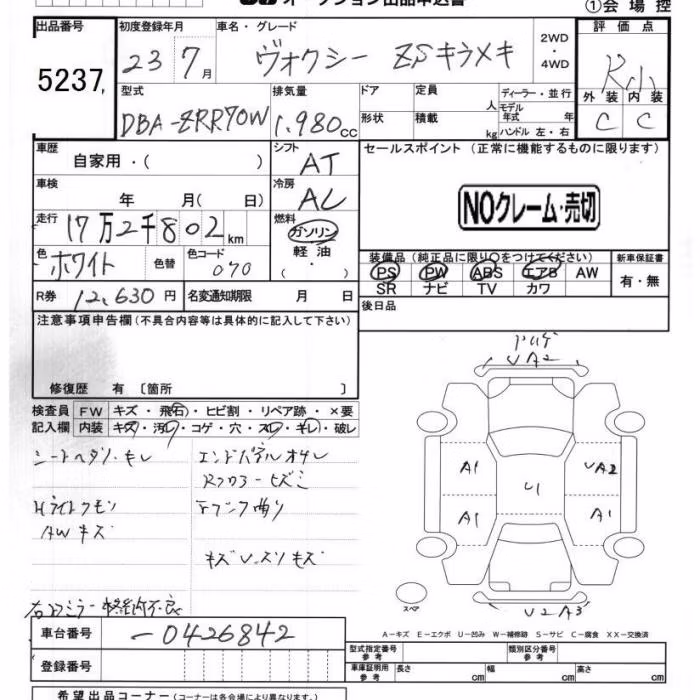 オークション出品申込書
①会場控
出品番号 初度登録年月 車名・グレード 2WD・4WD 評価点
5237 23 7月 ヴォクシー ZSキラメキ
型式 排気量 ドア 定員 人 ディーラー・並行 外装 内装
DBA-ZRR70W 1.980cc 形状 積載 kg モデル年式 年 C C
ハンドル 左・右
車歴 自家用・( ) シフト AT セールスポイント (正常に機能するものに限ります)
車検 年 月( 日) 冷房 AC NOクレーム・売切
走行 17万2千802km 燃料 ガソリン 軽油・
装備品(純正品に限り○をつけてください) 新車保証書
色 ホワイト 色替 色コード 070 PS PW ABS エアB AW 有・無
SR ナビ TV カワ
R券 12,630円 名変通知期限 月 日 後日品
注意事項申告欄(不具合内容等は具体的に記入して下さい)
修復歴 有 [箇所 ]
検査員 FW キズ・飛石・ヒビ割・リペア跡・×要
記入欄 内装 キズ・汚レ・コゲ・穴・スレ・キレ・破レ
UA2
シートヘタリ・キレ エンドパネルオサレ
A1 UA2
U1
AWキズ
A1 A1
キズUースリキズ
スペア
U2A3
車台番号 -0426842
A-キズ E-エクボ U-凹み W-補修跡 S-サビ C-腐食 XX-交換済
登録番号 型式指定番号 参考 類別区分番号 参考
車庫証明用 参考 長さ cm 幅 cm 高さ cm
希望出品コーナー(コーナーは各会場により異なります。)